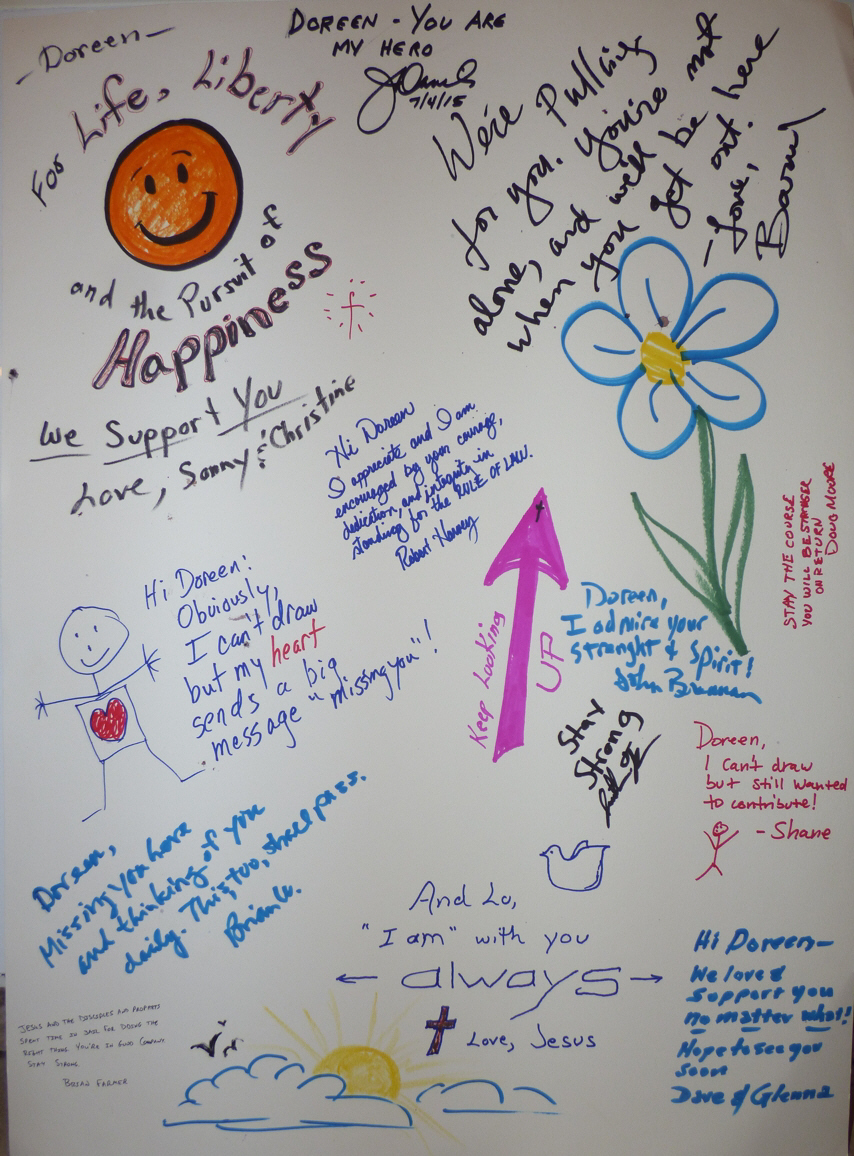 -Doreen-
For Life, Liberty
and the Pursuit of
Happiness
We Support You
Love, Sonny & Christine
DOREEN - YOU ARE
MY HERO
7/4/15
We're Pulling
for you. You're not
alone, and we'll be here
when you get out.
-Love,
Hi Doreen
I appreciate and I am
encouraged by your courage,
dedication, and integrity in
standing for the RULE OF LAW.
Robert
Keep Looking
UP
STAY THE COURSE
YOU WILL BE STRONGER
ON RETURN
DOUG MOORE
Hi Doreen:
Obviously,
I can't draw
but my heart
sends a big
message "missing you"!
Doreen,
I admire your
strenght & Spirit!
John
Stay
Strong
Doreen,
I can't draw
but still wanted
to contribute!
-Shane
Doreen,
Missing you here
and thinking of you
daily. This, too, shall pass.
Brian
And Lo,
"I am" with you
always
Love, Jesus
Hi Doreen-
We love &
support you
no matter what!
Hope to see you
soon
Dave & Glenna
JESUS AND THE DISCIPLES AND PROPHETS
SPENT TIME IN JAIL FOR DOING THE
RIGHT THING. YOU'RE IN GOOD COMPANY
STAY STRONG
BRIAN FARMER